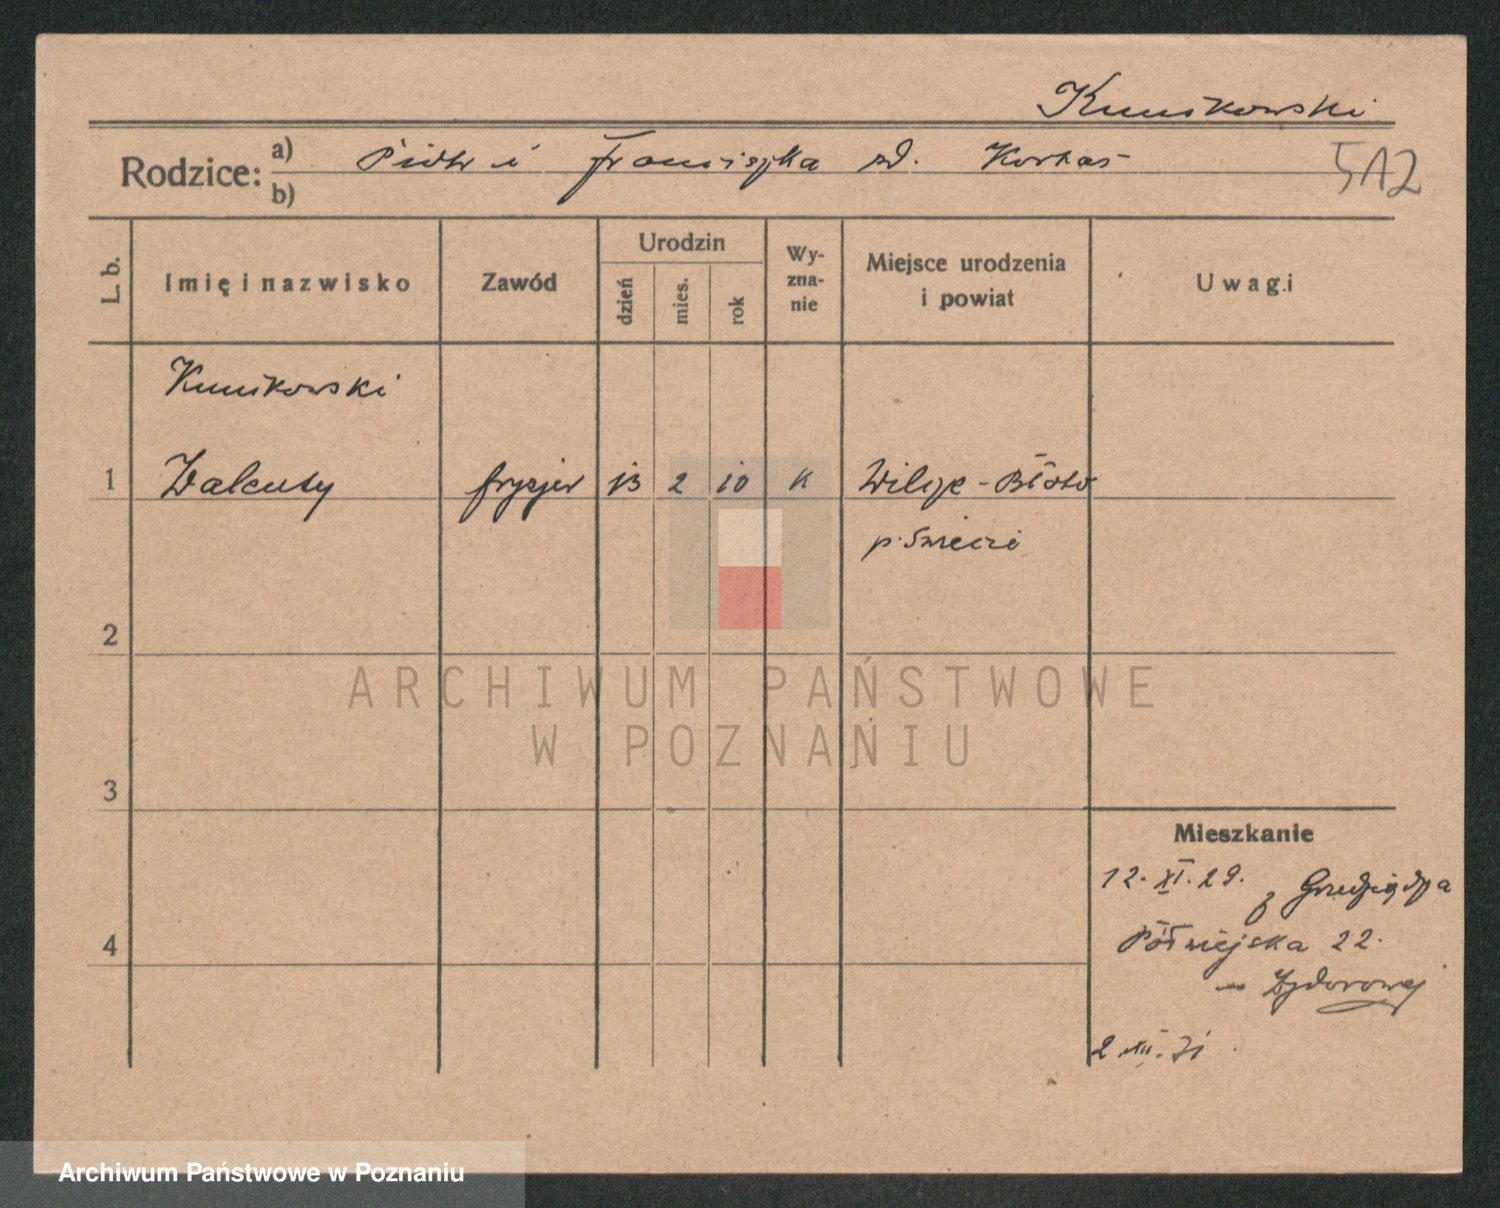 Kunikowski
Rodzice: a) Piotr i Franciszka zd. Korkas
b)
512
L. b.
Imię i nazwisko
Zawód
Urodzin
dzień
mies.
rok
Wy-
zna-
nie
Miejsce urodzenia
i powiat
Uwagi
Kunikowski
1 Walenty fryzjer 13 2 10 K Wilcze-Błoto
p. Świecie
2
ARCHIWUM PAŃSTWOWE
W POZNANIU
3
Mieszkanie
12. XI. 29. z Grudziądza
4
Półwiejska 22.
2 XII. 31
Archiwum Państwowe w Poznaniu